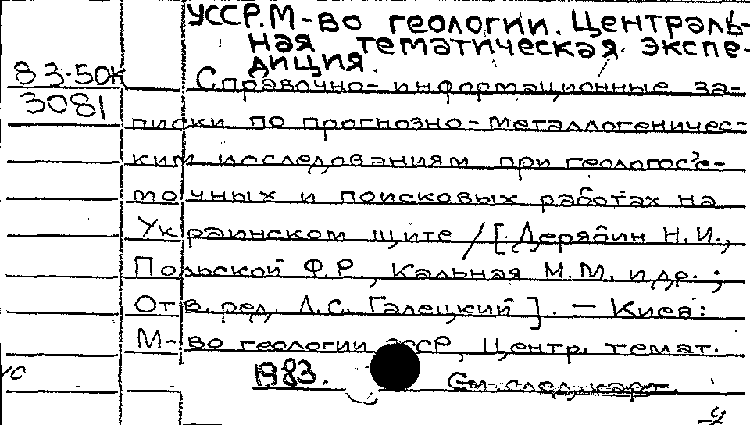 УССР. М-во геологии. Централь-
ная тематическая экспе-
диция.
83-50К Справочно-информационные за-
3081
писки по прогнозно-металлогеничес-
ким исследованиям при геологосъе-
мочных и поисковых работах на
Украинском щите / [Дерябин Н.И.,
Польской Ф.Р., Кальная М.М. и др.;
Отв. ред. Л.С. Галецкий]. — Киев:
М-во геологии УССР, Центр. темат.
1983. См. след. карт.